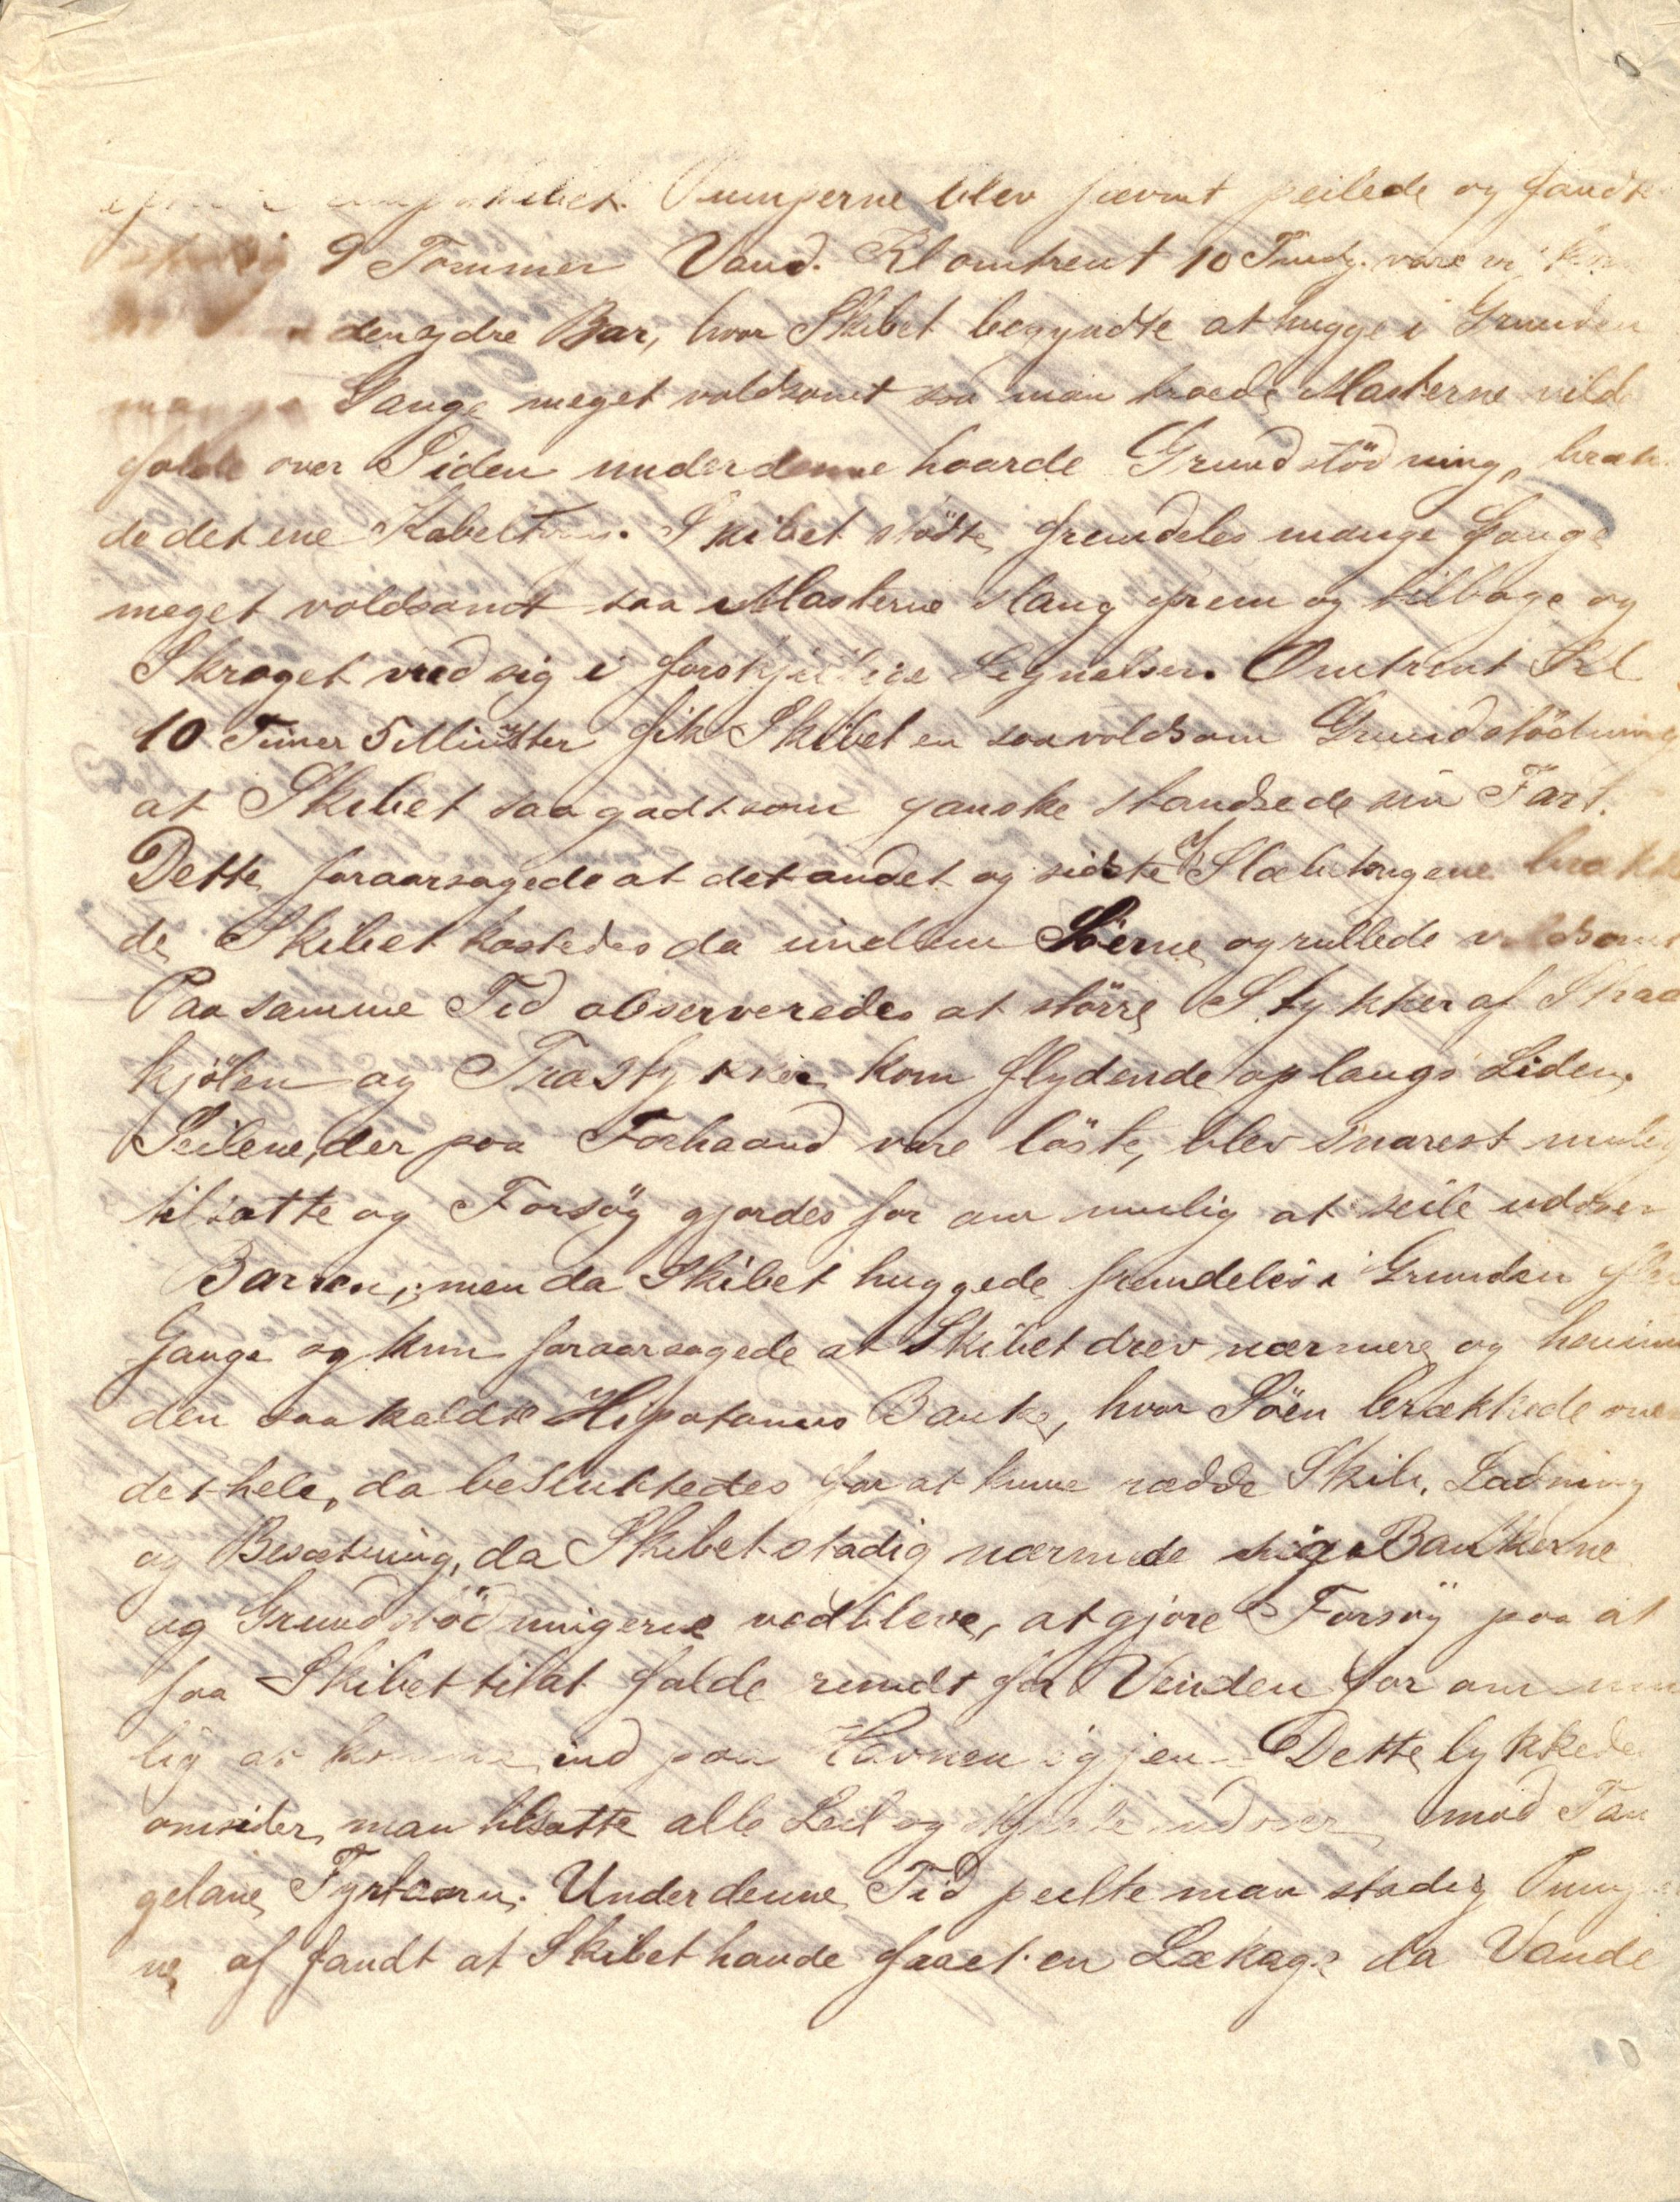 Pumperne blev jævnt peilede og fandt
9 Tommer Vand. Kl omtrent 10 vare vi
den ydre Bar, hvor Skibet begyndte at hugge i Grunden
Gange meget voldsomt saa man troede Masterne vilde
falde over Siden under denne haarde Grundstödning, bræk
de det ene Kabeltoug. Skibet stödte fremdeles mange Gange
meget voldsomt saa Masterne slang frem og tilbage og
Skroget vred sig i forskjellige Omtrent Kl
10 Timer 5 Minutter fik Skibet en saa voldsom Grundstödning
at Skibet saagodtsom ganske standsede sin Fart.
Dette foraarsagede at det andet og sidste af Slæbetougene bræk
de, Skibet kastedes da imellem Söerne og rullede voldsomt
Paa samme Tid observeredes at större Stykker af Straa
kjölen og Træstykker kom flydende op langs Siden.
Seilene, der paa Forhaand vare löste, blev snarest mulig
tilsatte og Forsög gjordes for om mulig at seile ud over
Barren; men da Skibet huggede fremdeles i Grunden flere
Gange og kun foraarsagede at Skibet drev nærmere og henimod
den saakaldte Hipotamus Banke, hvor Söen brækkede over
det hele, da besluttedes for at kunne rædde Skib, Ladning
og Besætning, da Skibet stadig nærmede sig Bankerne
og Grundstödningerne vedbleve, at gjore Forsög paa at
faa Skibet til at falde rundt for Vinden for om mu
lig at komme ind paa Havnen igjen. Dette lykkedes
omsider, man tilsatte alle Seil og mod Tan
gelane Fyrtaarn. Under denne Tid peilte man stadig Pumper
ne og fandt at Skibet havde faaet en Lækage da Vande